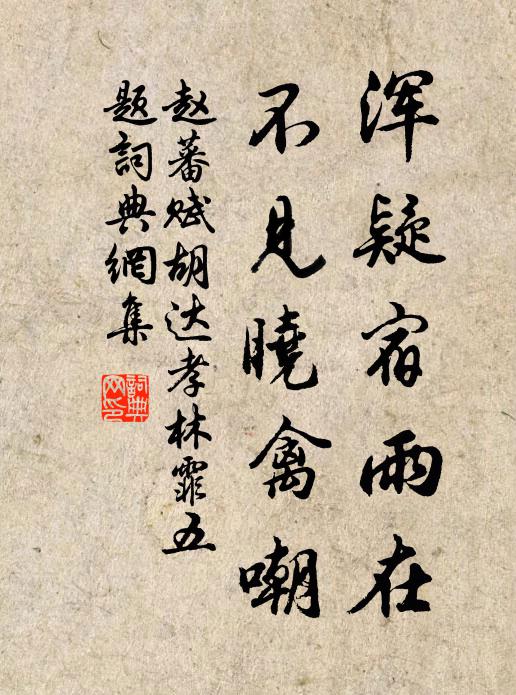 浑疑宿雨在
不见晓禽嘲
赵蕃赋胡达孝林霏五
题词典网集
词典网印